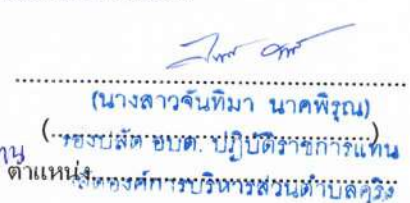 (นางสาวจันทิมา นาคพิรุณ)
(รองปลัด อบต. ปฏิบัติราชการแทน)
ตำแหน่ง ปลัดองค์การบริหารส่วนตำบลคุริง